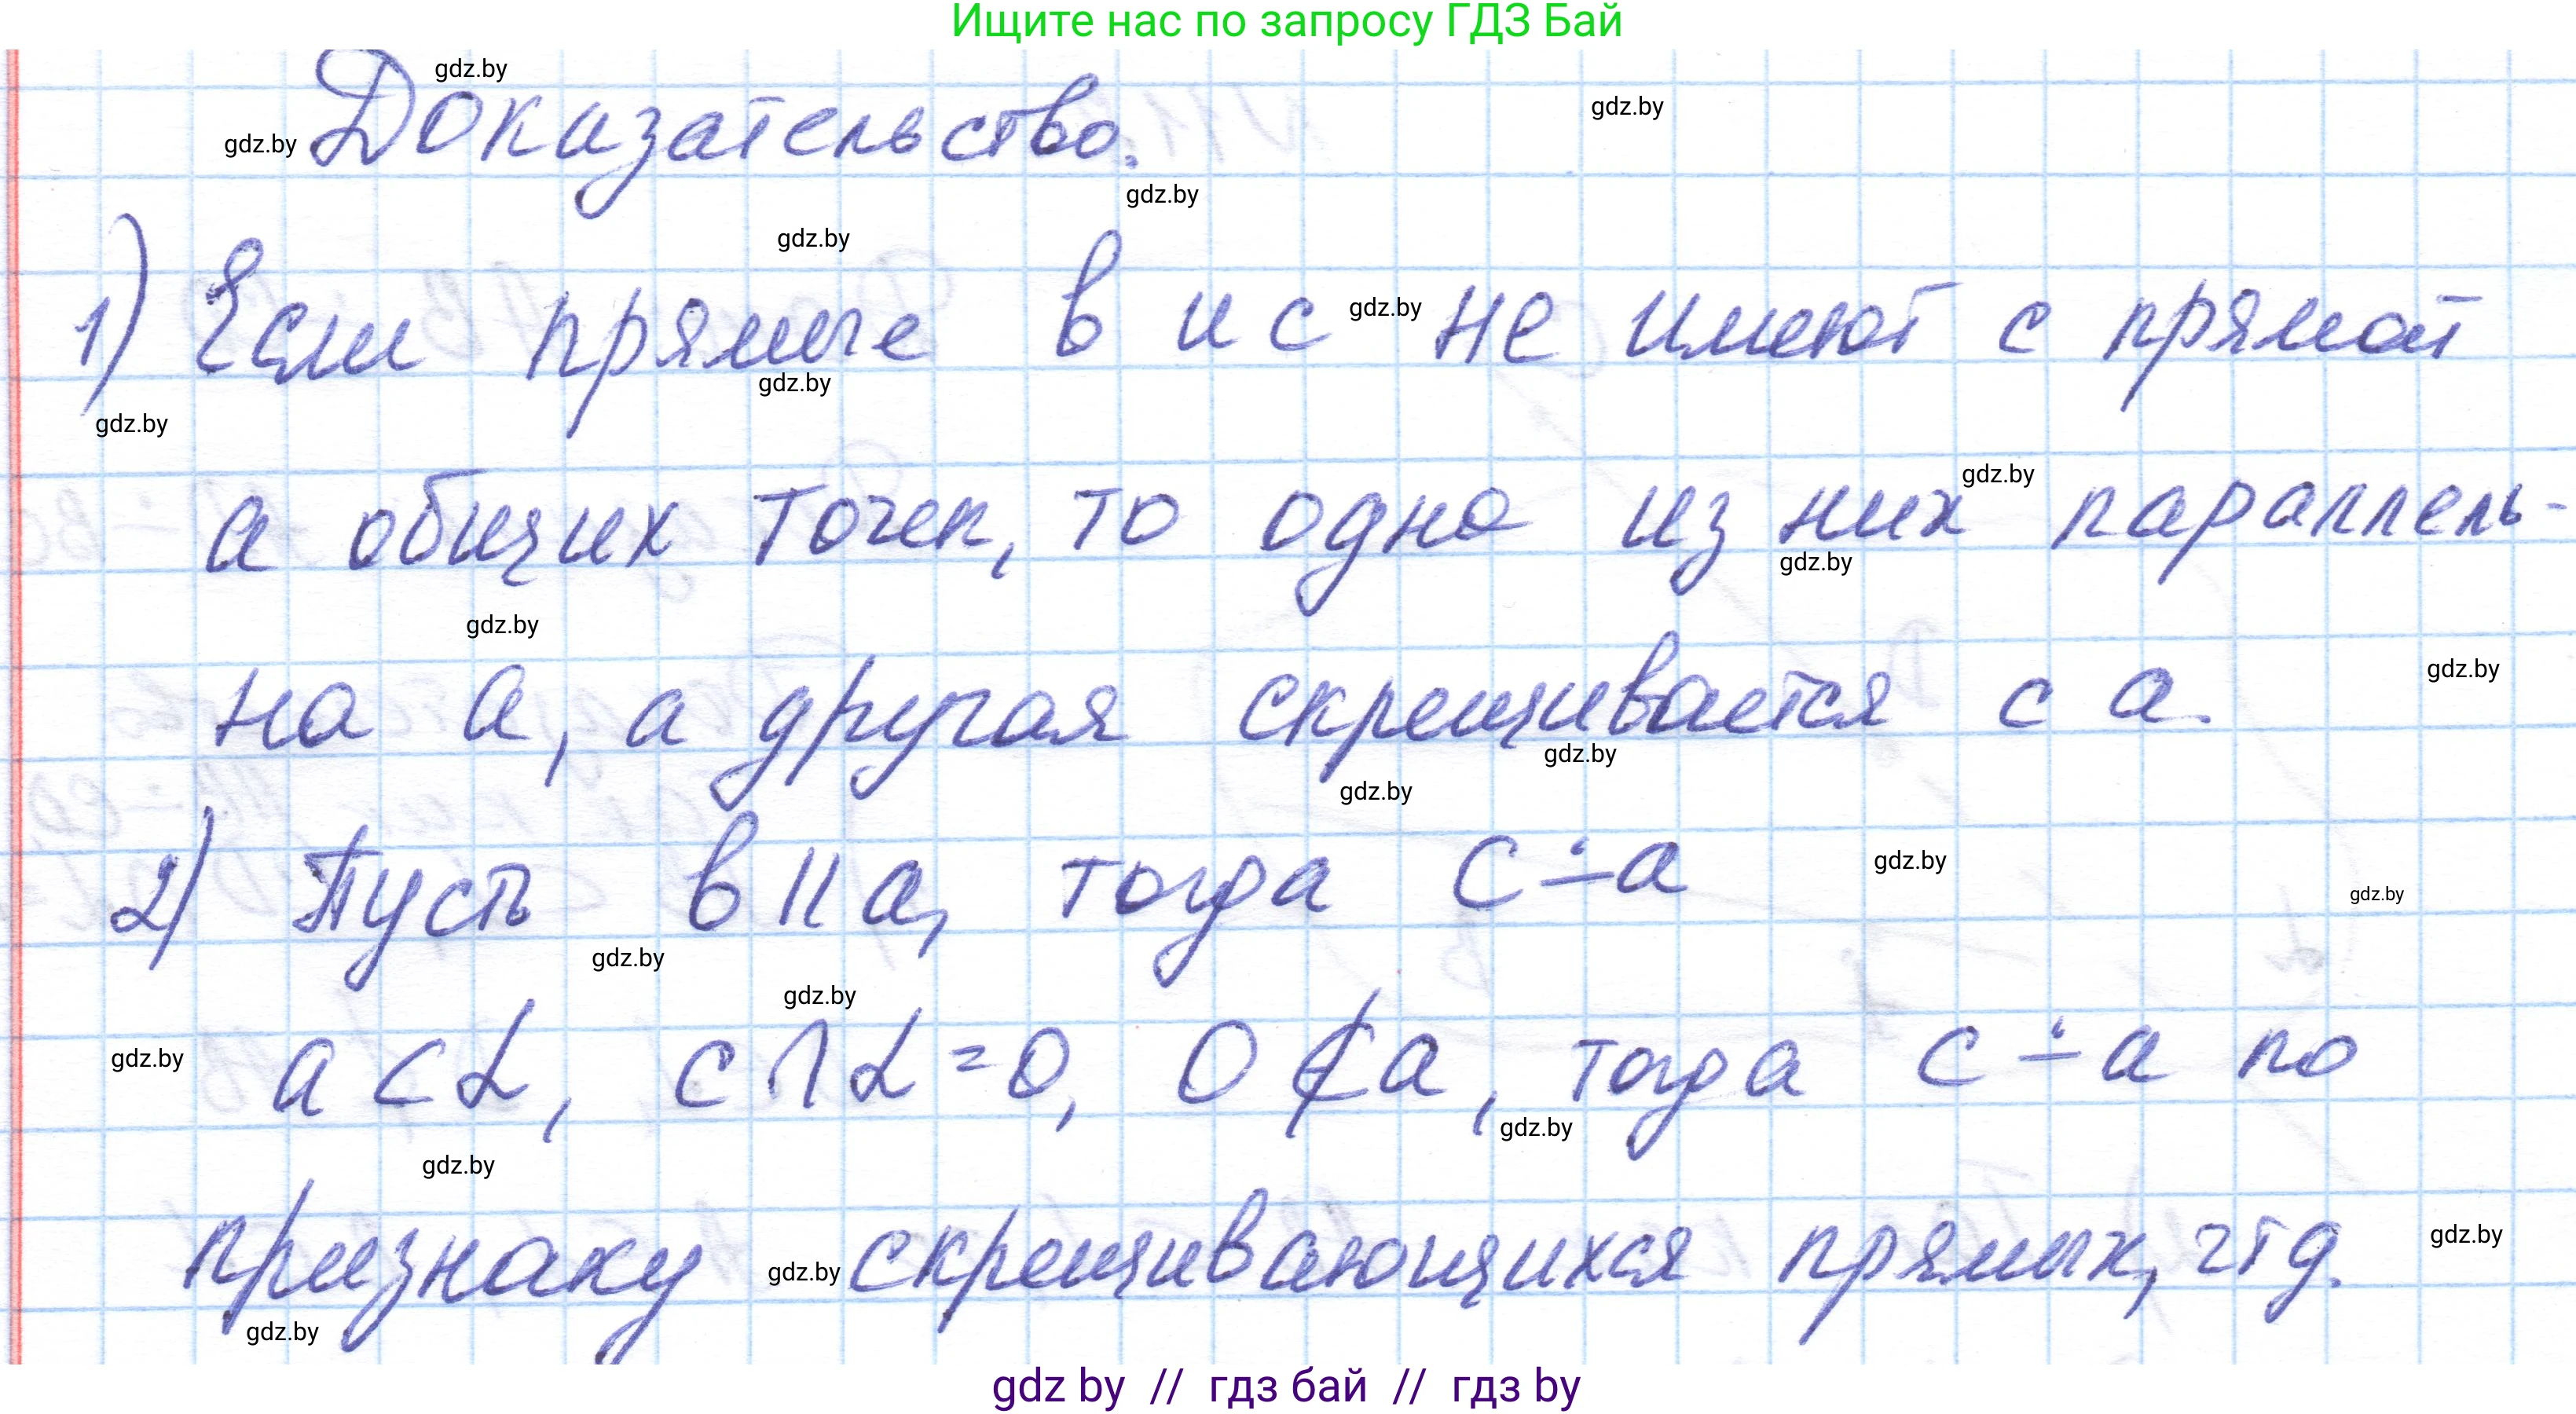 Ищите нас по запросу ГДЗ Бай
gdz.by
gdz.by
gdz.by Доказательство.
gdz.by
gdz.by
1) Если прямые в и с gdz.by не имеют с прямой
gdz.by
gdz.by
gdz.by
а общих точек, то одна из них параллель-
gdz.by
gdz.by
на а, а другая скрещивается с а. gdz.by
gdz.by
gdz.by
2) Пусть в || а, тогда с ∸ а gdz.by gdz.by
gdz.by
gdz.by
gdz.by а ⊂ α, с ∩ α = О, О ⊄ а, тогда с ∸ а по
gdz.by
gdz.by
признаку gdz.by скрещивающихся прямых, чтд. gdz.by
gdz.by
gdz by // гдз бай // гдз by